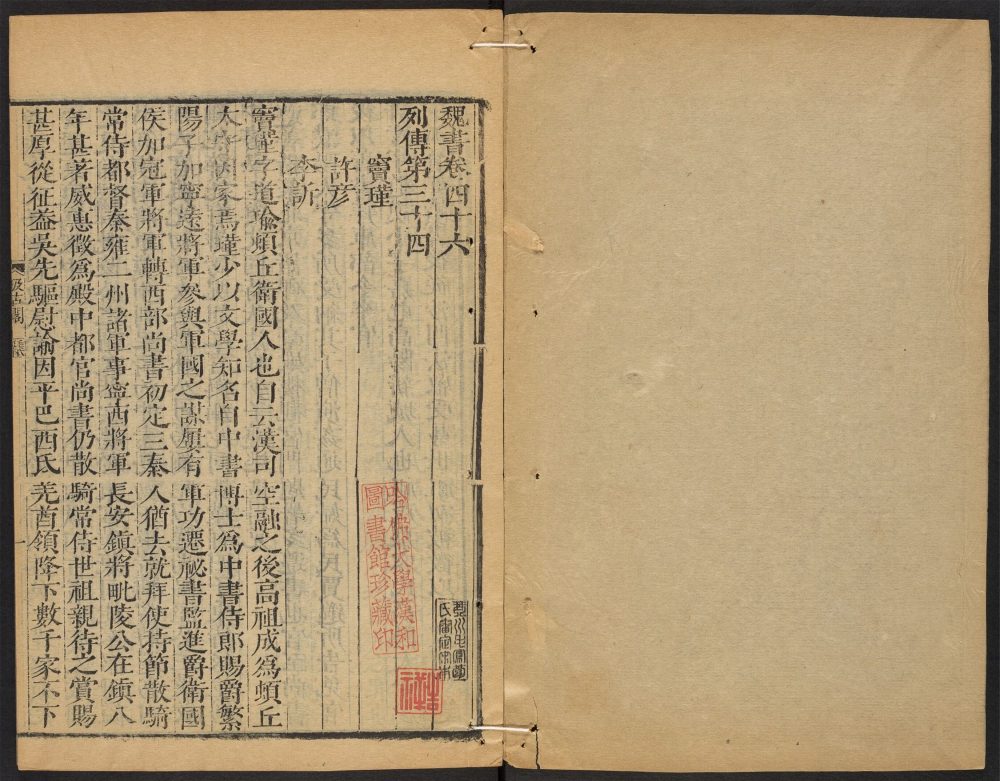 魏書卷四十六
列傳第三十四
竇瑾
許彦
李訢
竇瑾字道瑜頓丘衛國人也自云漢司空融之後高祖成爲頓丘
太守因家焉瑾少以文學知名自中書博士爲中書侍郎賜爵繁
陽子加寧遠將軍參與軍國之謀屢有軍功遷祕書監進爵衛國
侯加冠軍將軍轉西部尚書初定三秦人猶去就拜使持節散騎
常侍都督秦雍二州諸軍事寧西將軍長安鎮將毗陵公在鎮八
年甚著威惠徵爲殿中都官尚書仍散騎常侍世祖親待之賞賜
甚厚從征蓋吳先驅慰諭因平巴西氐羌酋領降下數千家不下
汲古閣
一
哈佛大學漢和
圖書館珍藏印